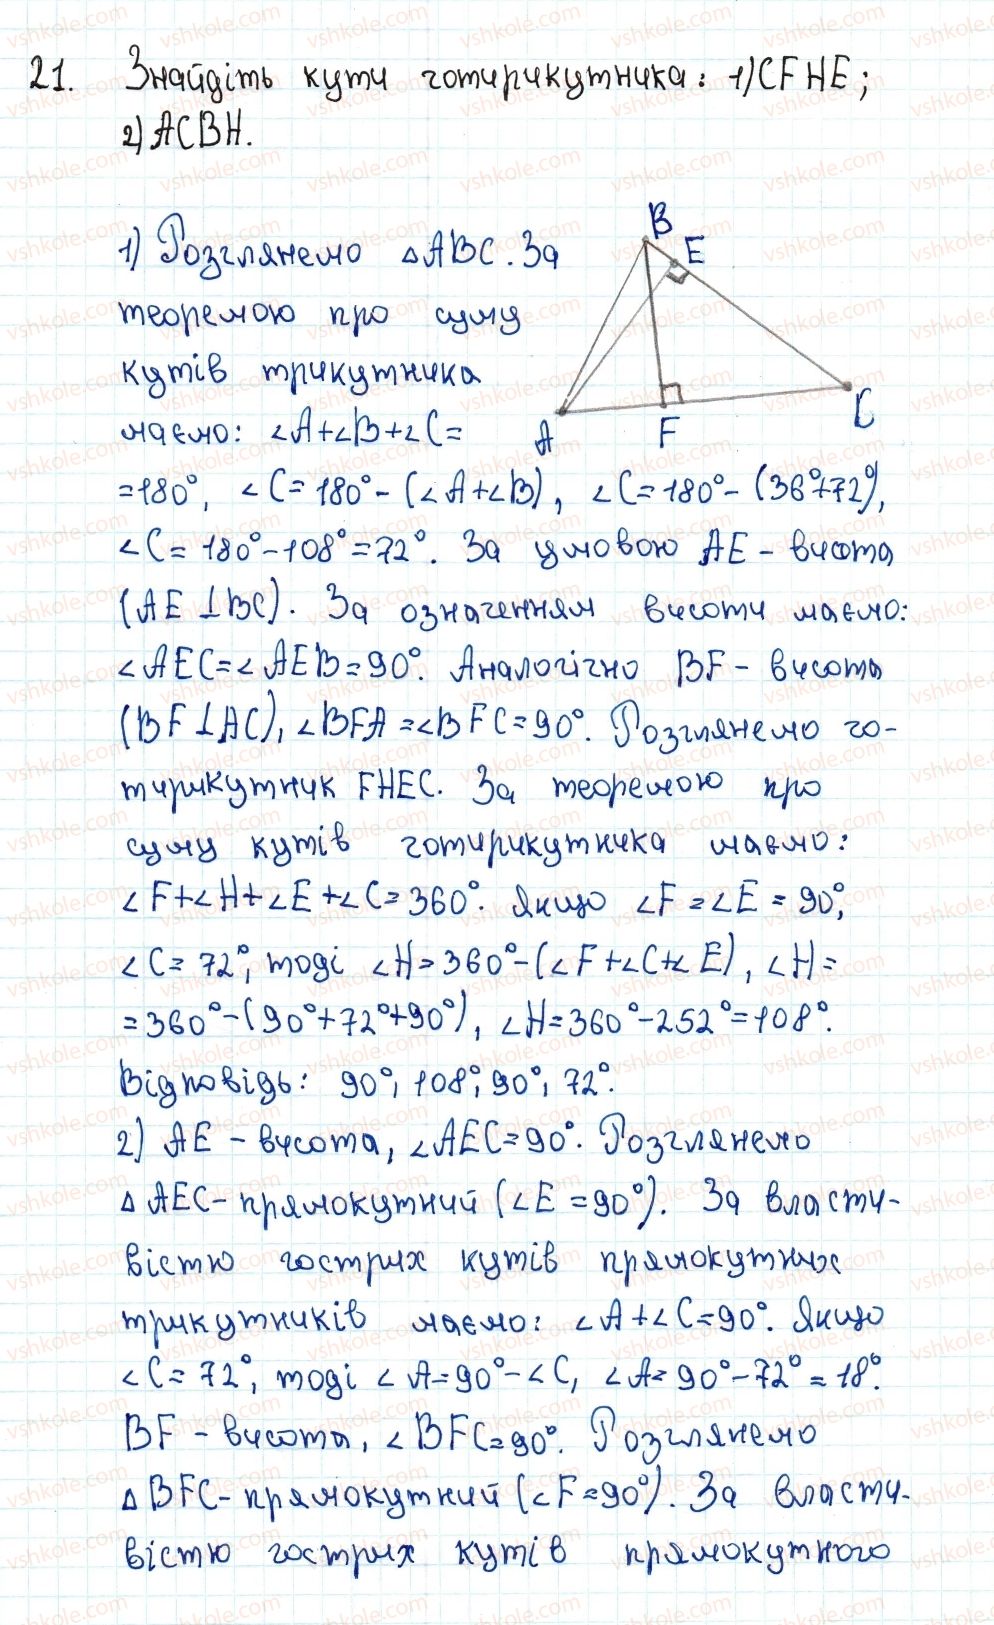 21. Знайдіть кути чотирикутника: 1) CFHE;
2) ACBH.
B
E
A
F
C
1) Розглянемо △ABC. За
теоремою про суму
кутів трикутника
маємо: ∠A+∠B+∠C=
=180°, ∠C=180°-(∠A+∠B), ∠C=180°-(36°+72°),
∠C=180°-108°=72°. За умовою AE - висота
(AE⊥BC). За означенням висоти маємо:
∠AEC=∠AEB=90°. Аналогічно BF - висота
(BF⊥AC), ∠BFA=∠BFC=90°. Розглянемо чо-
тирикутник FHEC. За теоремою про
суму кутів чотирикутника маємо:
∠F+∠H+∠E+∠C=360°. Якщо ∠F=∠E=90°,
∠C=72°, тоді ∠H=360°-(∠F+∠C+∠E), ∠H=
=360°-(90°+72°+90°), ∠H=360°-252°=108°.
Відповідь: 90°, 108°, 90°, 72°.
2) AE - висота, ∠AEC=90°. Розглянемо
△AEC - прямокутний (∠E=90°). За власти-
вістю гострих кутів прямокутних
трикутників маємо: ∠A+∠C=90°. Якщо
∠C=72°, тоді ∠A=90°-∠C, ∠A=90°-72°=18°.
BF - висота, ∠BFC=90°. Розглянемо
△BFC - прямокутний (∠F=90°). За власти-
вістю гострих кутів прямокутного